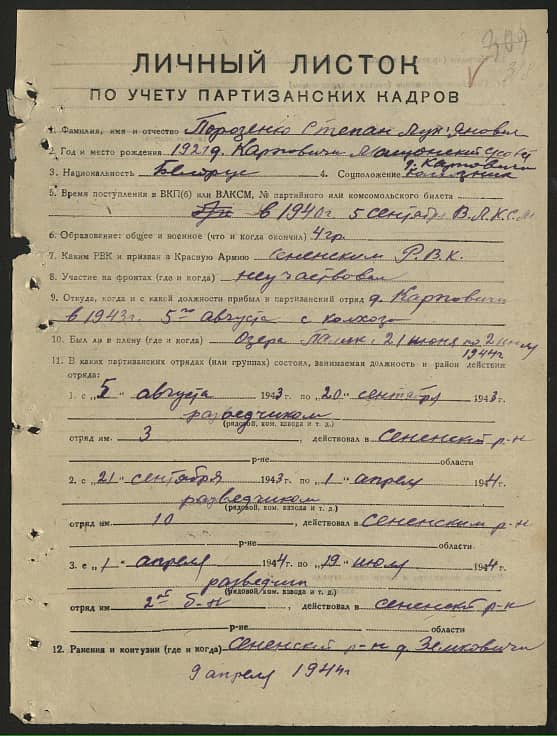 309
318
ЛИЧНЫЙ ЛИСТОК
ПО УЧЕТУ ПАРТИЗАНСКИХ КАДРОВ
1. Фамилия, имя и отчество Порозенко Степан
2. Год и место рождения 1921 д. Карповичи
д. Карповичи
3. Национальность Белорус 4. Соцположение колхозник
5. Время поступления в ВКП(б) или ВЛКСМ, № партийного или комсомольского билета
в 1940г. 5 сентября В.Л.К.С.М
6. Образование: общее и военное (что и когда окончил) 4 гр.
7. Каким РВК и призван в Красную Армию сененским Р.В.К.
8. Участие на фронтах (где и когда) неучаствовал
9. Откуда, когда и с какой должности прибыл в партизанский отряд д. Карповичи
в 1943г. 5го августа с колхоза
10. Был ли в плену (где и когда) Озера Палик с 21 июня по 2 июля
1944г
11. В каких партизанских отрядах (или группах) состоял, занимаемая должность и район действия
отряда:
1. с „5" августа 1943 г. по „20" сентября 1943 г.
разведчиком
(рядовой, ком. взвода и т. д.)
отряд им. 3 , действовал в сененский р-н
р-не области
2. с „21" сентября 1943 г. по „1" апреля 1944 г.
разведчиком
(рядовой, ком. взвода и т. д.)
отряд им. 10 , действовал в сененским р-н
р-не области
3. с „1" апреля 1944 г. по „19" июля 1944 г.
разведчик
(рядовой, ком. взвода и т. д.)
отряд им. 2ой б-н , действовал в сененский р-н
р-не области
12. Ранения и контузии (где и когда) сененский р-н д. Земковичи
9 апреля 1944г